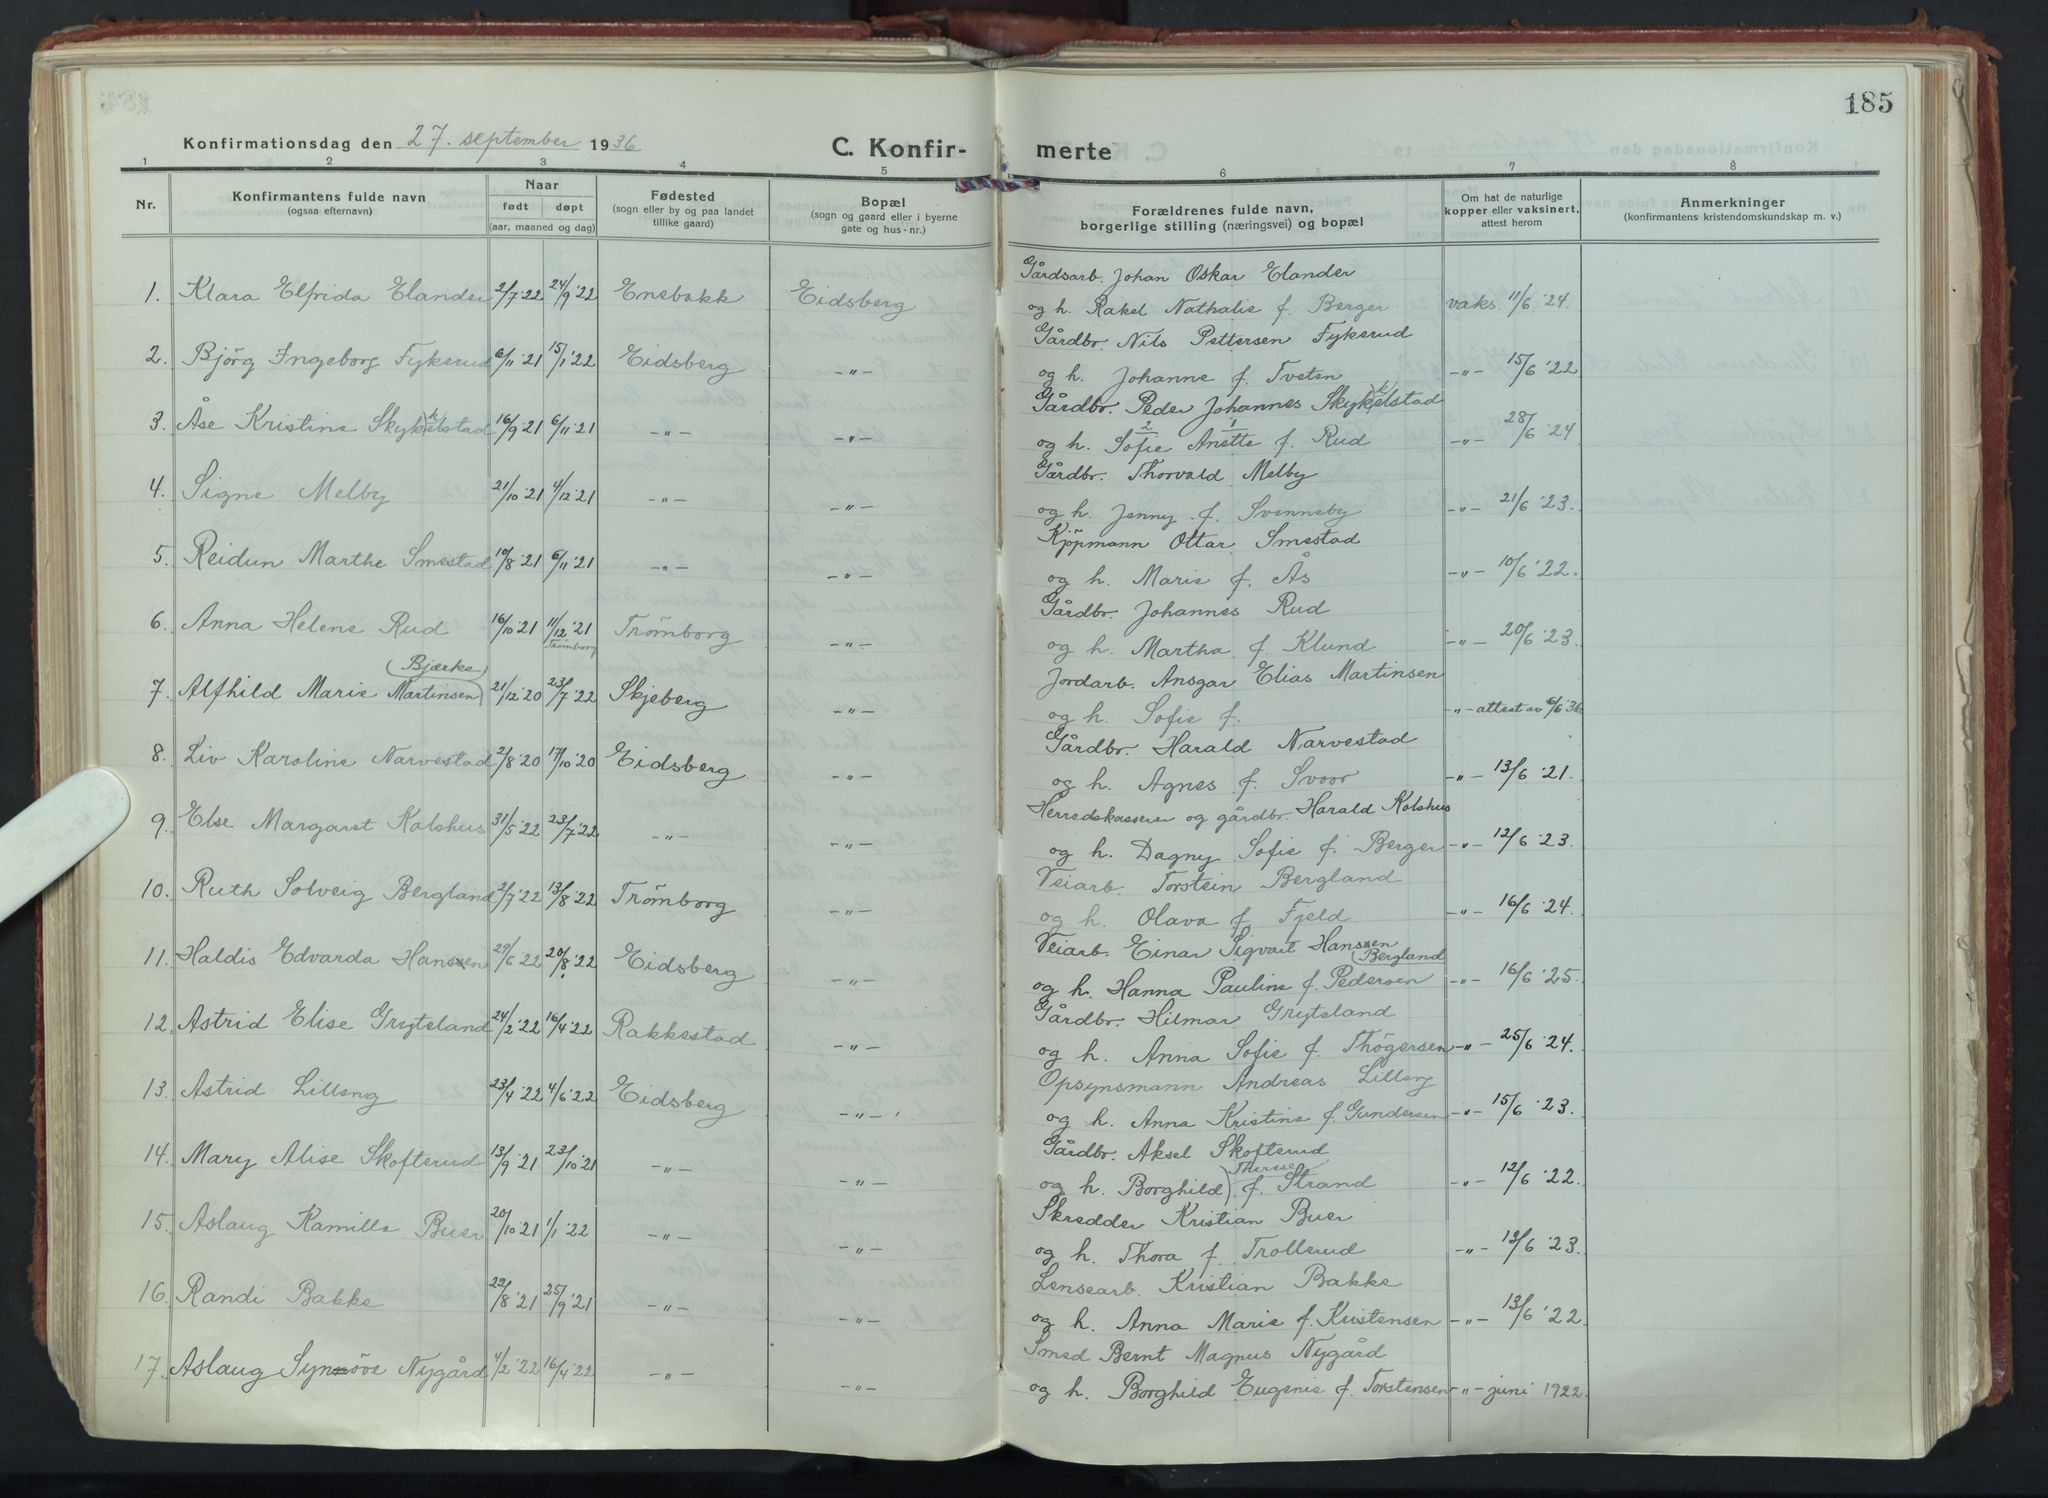 185
Konfirmationsdag den 27. september 1936
C. Konfir- merte
1 2 3 4 5 6 7 8
Nr. Konfirmantens fulde navn (ogsaa efternavn) Naar født døpt (aar, maaned og dag) Fødested (sogn eller by og paa landet tillike gaard) Bopæl (sogn og gaard eller i byerne gate og hus-nr.) Forældrenes fulde navn, borgerlige stilling (næringsvei) og bopæl Om hat de naturlige kopper eller vaksinert, attest herom Anmerkninger (konfirmantens kristendomskundskap m. v.)
Gårdsarb. Johan Oskar Elander
1. Klara Elfrida Elander 2/7 '22 24/9 '22 Enebakk Eidsberg og h. Rakel Nathalie f. Berger vaks. 11/6 '24.
Gårdbr. Nils Pettersen Fykerud
2. Bjørg Ingeborg Fykerud 6/11 '21 15/1 '22 Eidsberg -"- og h. Johanne f. Tveten -"- 15/6 '22
Gårdbr. Peder Johannes Skykelstad
3. Åse Kristine Skykelstad 16/9 '21 6/11 '21 -"- -"- og h. Sofie Anette f. Rud -"- 28/6 '24
Gårdbr. Thorvald Melby
4. Signe Melby 21/10 '21 4/12 '21 -"- -"- og h. Jenny f. Svenneby -"- 21/6 '23.
Kjøpmann Ottar Smestad
5. Reidun Marthe Smestad 10/8 '21 6/11 '21 -"- -"- og h. Marie f. Ås -"- 10/6 '22.
Gårdbr. Johannes Rud
6. Anna Helene Rud 16/10 '21 11/12 '21 Trømborg Trømborg -"- og h. Martha f. Klund -"- 20/6 '23.
(Bjærke) Jordarb. Ansgar Elias Martinsen
7. Alfhild Marie Martinsen 21/12 '20 23/7 '22 Skjeberg -"- og h. Sofie f. -"- attest av 6/6 '36
Gårdbr. Harald Narvestad
8. Liv Karoline Narvestad 2/8 '20 17/10 '20 Eidsberg -"- og h. Agnes f. Svoor -"- 13/6 '21.
Herredskasserer og gårdbr. Harald Kolshus
9. Else Margaret Kolshus 31/5 '22 23/7 '22 -"- -"- og h. Dagny Sofie f. Berger -"- 12/6 '23.
Veiarb. Torstein Bergland
10. Ruth Solveig Bergland 2/7 '22 13/8 '22 Trømborg -"- og h. Olava f. Fjeld -"- 16/6 '24.
Veiarb. Einar Sigvart Hansen (Bergland
11. Haldis Edvarda Hansen 29/6 '22 20/8 '22 Eidsberg -"- og h. Hanna Pauline f. Pedersen -"- 16/6 '25.
Gårdbr. Hilmar Gryteland
12. Astrid Elise Gryteland 24/2 '22 16/4 '22 Rakkestad -"- og h. Anna Sofie f. Thøgersen -"- 25/6 '24.
Opsynsmann Andreas Lilleng
13. Astrid Lilleng 23/4 '22 4/6 '22 Eidsberg -"- og h. Anna Kristine f. Gundersen -"- 15/6 '23.
Gårdbr. Aksel Skofterud
14. Mary Alise Skofterud 13/9 '21 23/10 '21 -"- -"- og h. Borghild Therese f. Strand -"- 12/6 '22.
Skredder Kristian Buer
15. Aslaug Kamilla Buer 20/10 '21 1/1 '22 -"- -"- og h. Thora f. Trollerud -"- 13/6 '23.
Lensearb. Kristian Bakke
16. Randi Bakke 29/8 '21 25/9 '21 -"- -"- og h. Anna Marie f. Kristensen -"- 13/6 '22
Smed Bernt Magnus Nygård
17. Aslaug Synnøve Nygård 4/2 '22 16/4 '22 -"- -"- og h. Borghild Eugenie f. Torstensen -"- juni 1922.